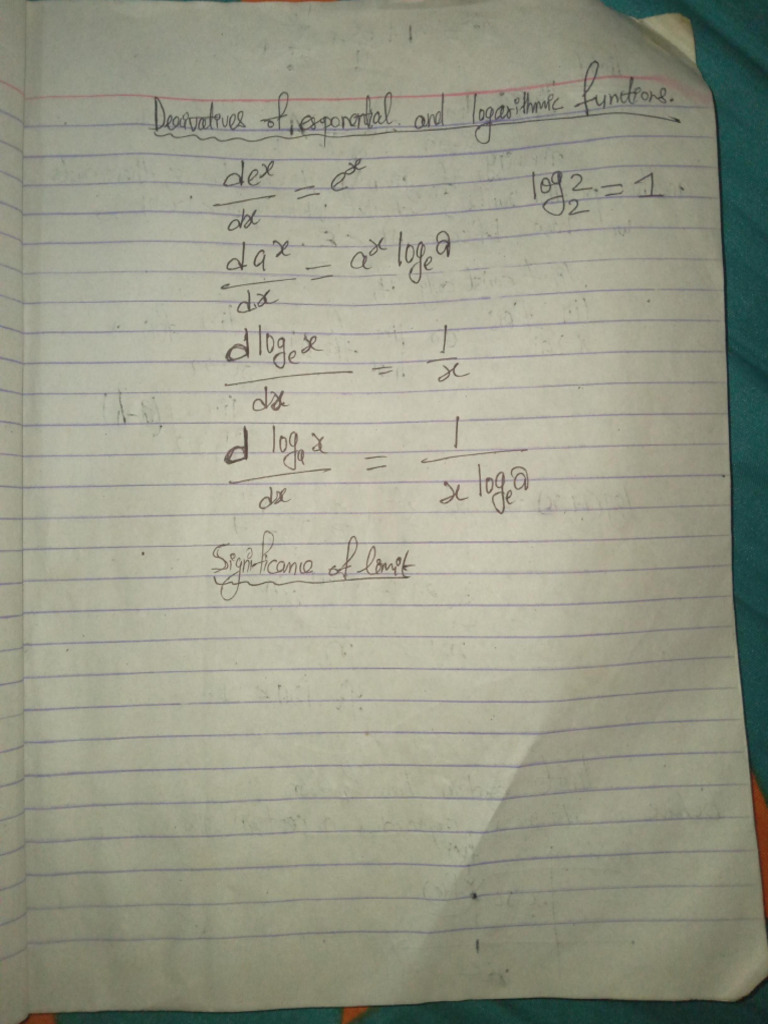 Dearivatives of exponential and logarithmic functions.
de^x/dx = e^x    log_2 2 = 1.
da^x/dx = a^x log_e a
d log_e x/dx = 1/x
d log_a x/dx = 1/(x log_e a)
Significance of limit